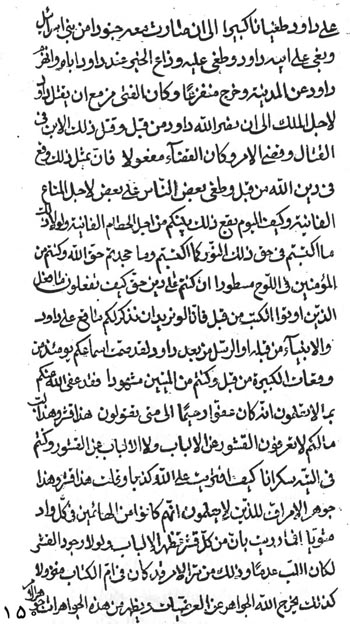 على داود طغيانا كبيرا الى ان صارت معه جنودا من بنى اسرائيل
وبغى على ابيه داود وطغى عليه وذاع الخبر عند داود اباه وافر
داود عن المدينة وخرج منفردا وكان الفتى مزمع ان يقتل داود
لاجل الملك الى ان نصر الله داود من قبل وقتل ذلك الابن فى
القتال وقضى الامر وكان القضآء مفعولا فان مثل ذلك وقع
فى دين الله من قبل وطغى بعض الناس على بعض لاجل المتاع
الفانية وكيف اليوم يقع ذلك بينكم من اجل الحطام الفانية ولولا ذلك
ما اكتبتم فى حق ذلك النور كما اكتبتم وما جحدتم حق الله وكنتم من
المؤمنين فى اللوح مسطورا ان كنتم على دين حق كيف تفعلون ما فعل
الذين اوتوا الكتب من قبل فانا لو نريد ان نذكر لكم ما وقع على داود
والانبيآء من قبله او الرسل من بعد داود لقد صمت اسماعكم يومئذ من
وقعات الكبيرة من قبل وكنتم من المبين مشهودا فقد عفى الله عنكم
بما لا تعلمون انه كان عفوا رحيما الى متى تقولون هذا قشر وهذا لب
مالكم لا تعرفون القشور عن الالباب ولا الالباب عن القشور وكنتم
فى التيه سكرانا كيف افتريت على الله كذبا وقلت هذا قشر وهذا
جوهر الامر ان الذين لا يعلمون انهم كانوا من الهائمين فى كل واد
مثويا اما دريت بان من كل قشر تظهر الالباب ولولا وجود القشر
لكان اللب عدما وذلك من سر الامر قد كان فى ام الكتاب مقولا
كذلك يخرج الله الجواهر عن العرضيات ويظهر من هذه الجواهر جواهرا
١٥